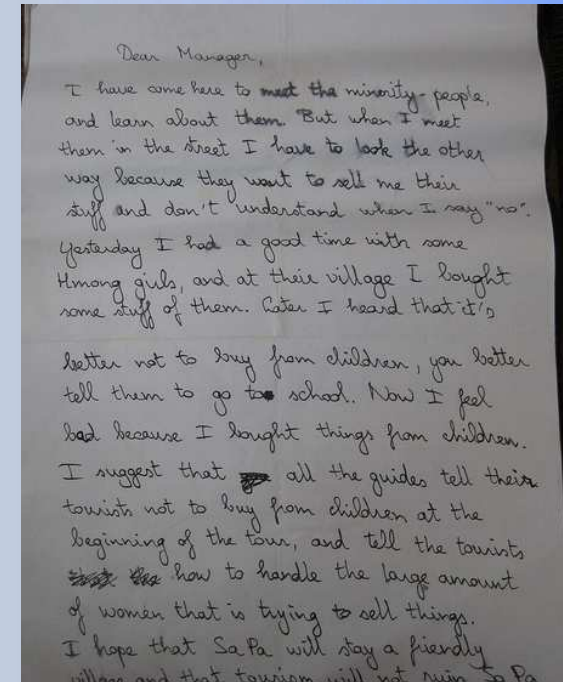 Dear Manager,
I have come here to meet the minority-people,
and learn about them. But when I meet
them in the street I have to look the other
way because they want to sell me their
stuff and don't understand when I say "no".
Yesterday I had a good time with some
Hmong girls, and at their village I bought
some stuff of them. Later I heard that it's
better not to buy from children, you better
tell them to go to school. Now I feel
bad because I bought things from children.
I suggest that all the guides tell their
tourists not to buy from children at the
beginning of the tour, and tell the tourists
how to handle the large amount
of women that is trying to sell things.
I hope that SaPa will stay a friendly
village and that tourism will not ruin Sa Pa